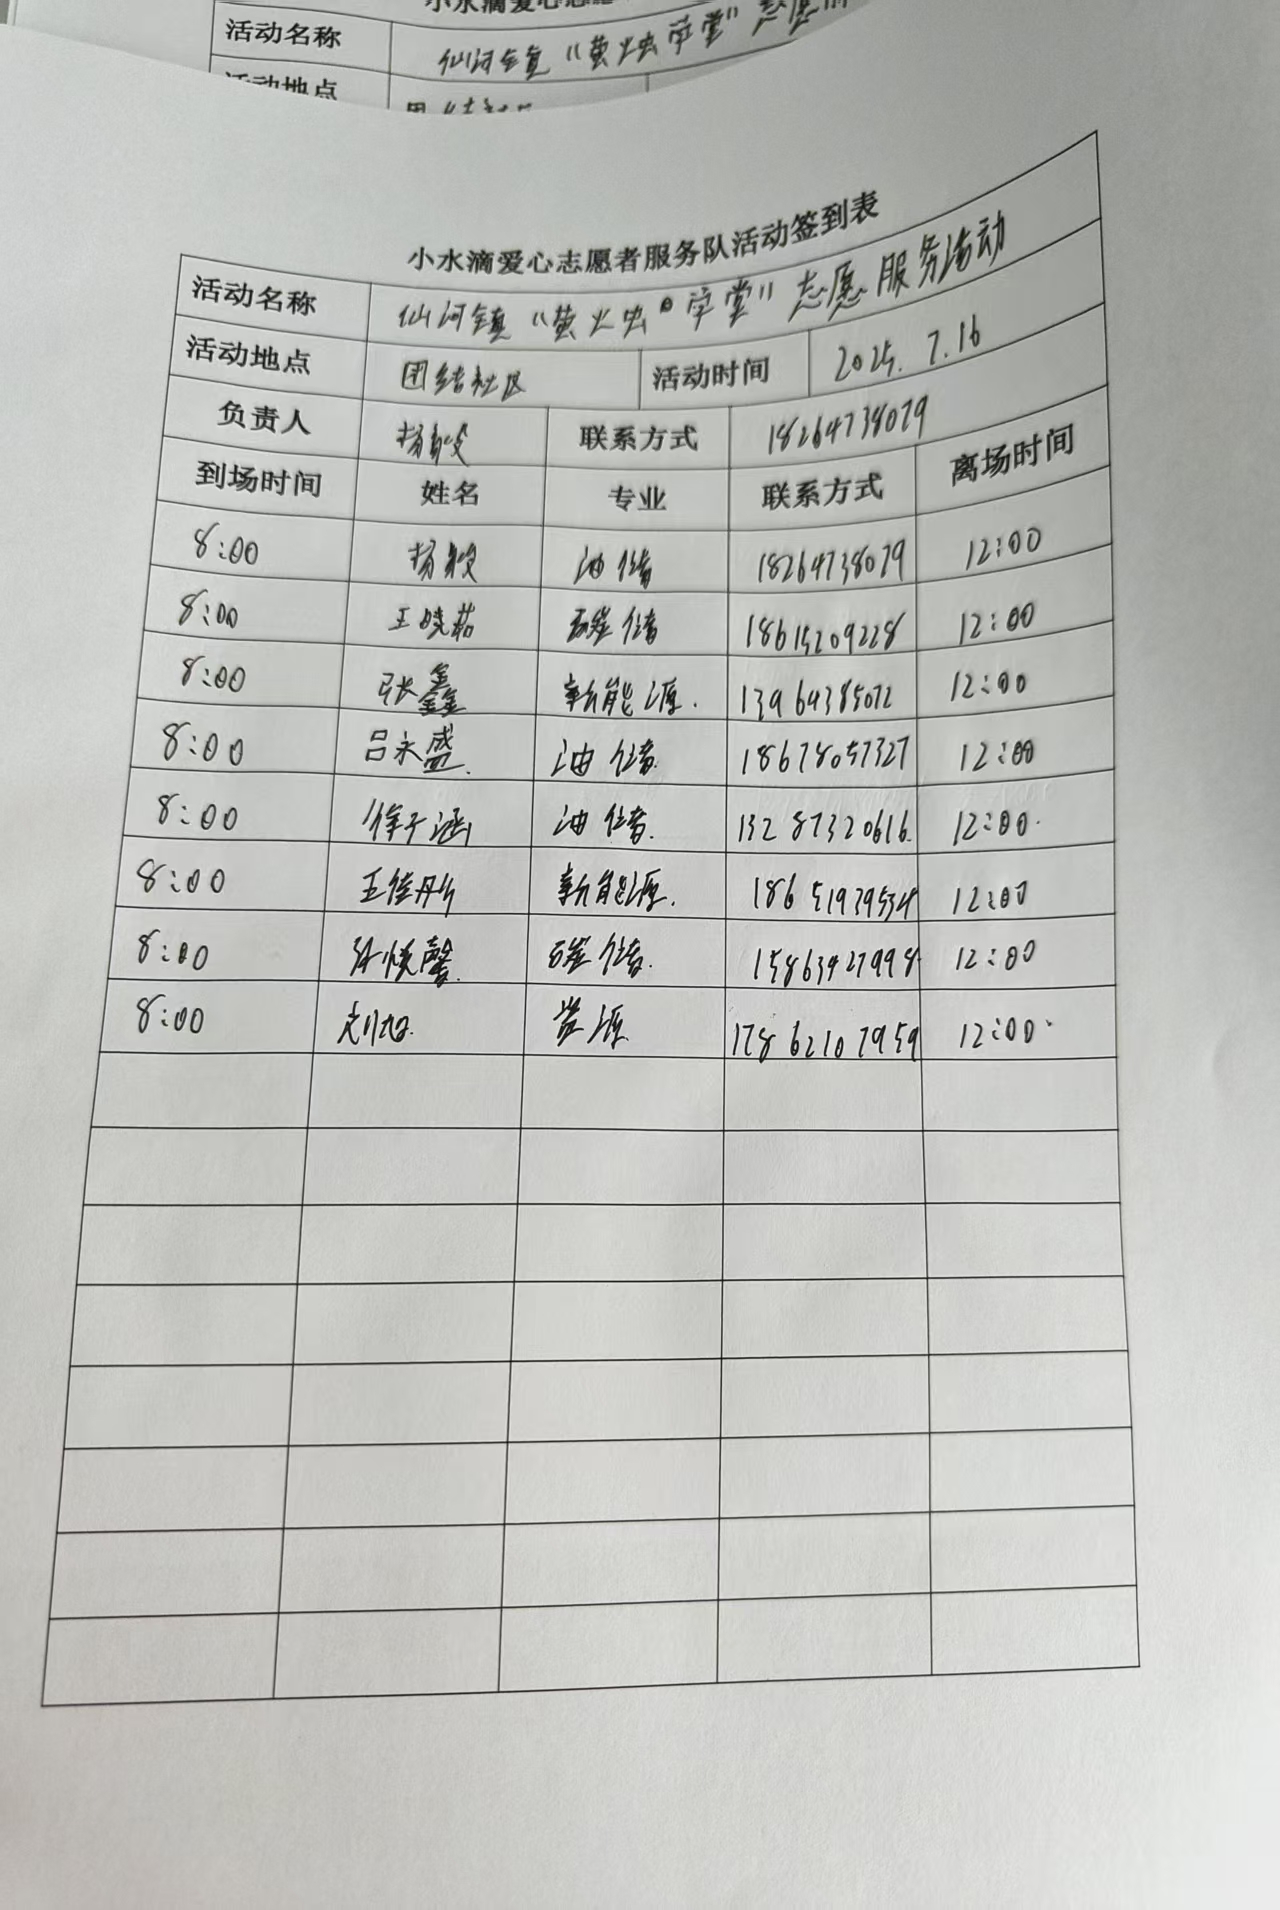 小水滴爱心志愿
活动名称 仙河镇“萤火虫学堂”志愿
活动地点 团结社区
小水滴爱心志愿者服务队活动签到表
活动名称 仙河镇“萤火虫学堂”志愿服务活动
活动地点 团结社区 活动时间 2025.7.16
负责人 杨 联系方式 18264738079
到场时间 姓名 专业 联系方式 离场时间
8:00 杨 油储 18264738079 12:00
8:00 王晓茹 碳储 18615209228 12:00
8:00 张鑫 新能源. 13964385072 12:00
8:00 吕永盛. 油储. 18678057327 12:00
8:00 徐子涵 油储. 13287320616 12:00.
8:00 王佳彤 新能源. 18651939534 12:00
8:00 悦馨. 碳储. 15863427998 12:00
8:00 资源. 17862107959 12:00